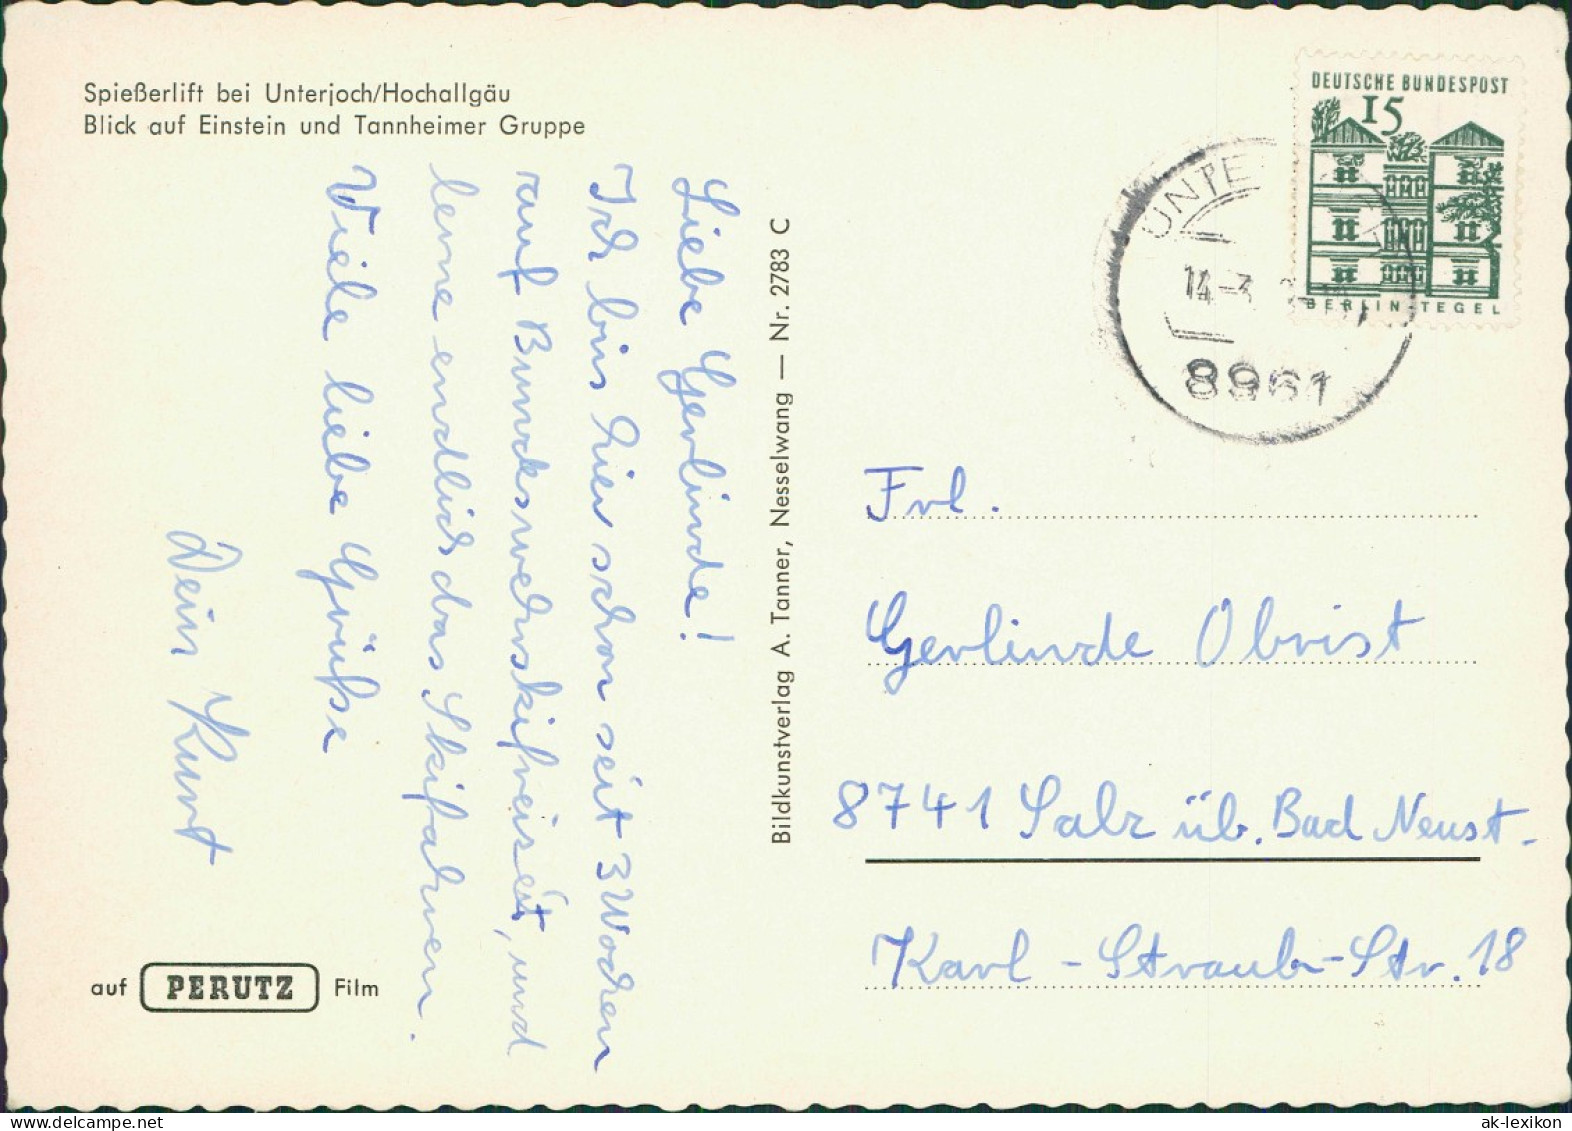 Spießerlift bei Unterjoch/Hochallgäu
Blick auf Einstein und Tannheimer Gruppe
Liebe Gerlinde!
Ich bin hier schon seit 3 Wochen
auf Bundeswehrskifreizeit, und
lerne endlich das Skifahren.
Viele liebe Grüße
Dein Kurt
auf PERUTZ Film
Bildkunstverlag A. Tanner, Nesselwang — Nr. 2783 C
DEUTSCHE BUNDESPOST
15
BERLIN-TEGEL
14.-3.
8961
Frl.
Gerlinde Obrist
8741 Salz üb. Bad Neust.
Karl-Straub-Str. 18
delcampe.net
ak-lexikon